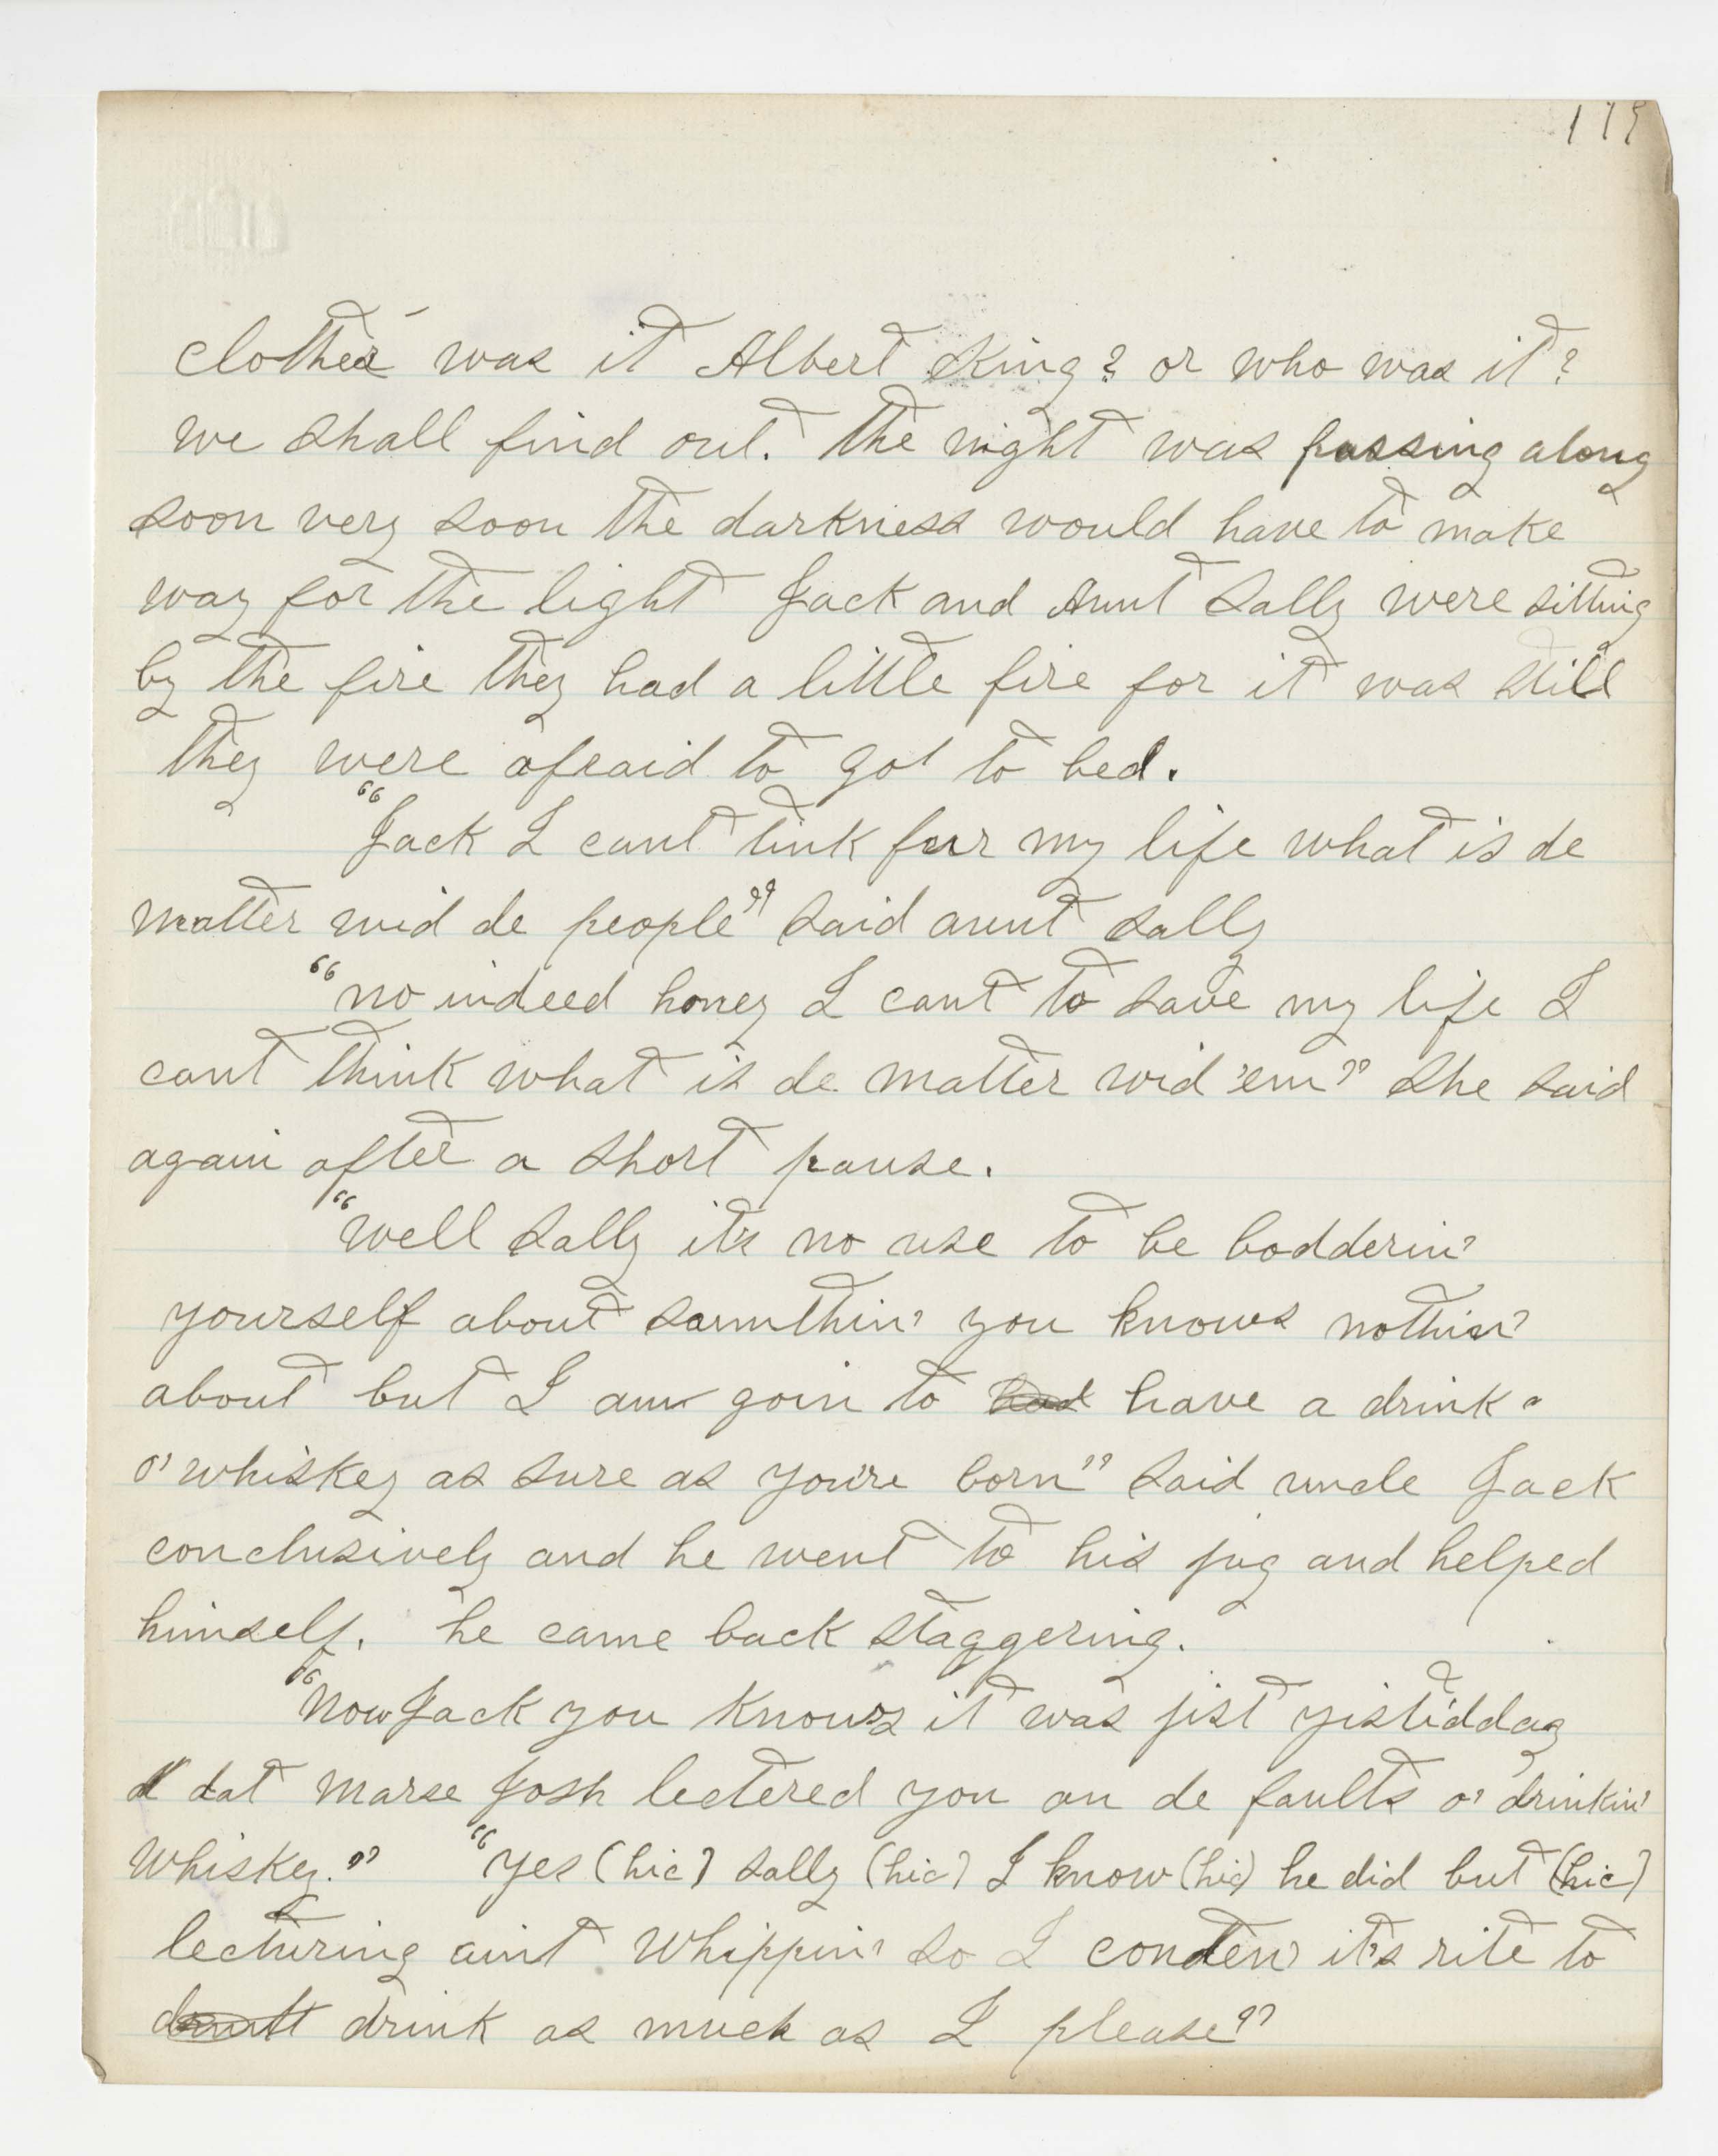 179
clothes was it Albert King? or who was it?
we shall find out. the night was passing along
soon very soon the darkness would have to make
way for the light Jack and Aunt Sally were sitting
by the fire they had a little fire for it was still
they were afraid to got to bed.
"Jack I cant tink fur my life what is de
matter wid de people" said aunt Sally
"no indeed honey I cant to save my life I
cant think what is de matter wid 'em" She said
again after a short pause.
"well Sally it's no use to be bodderin'
yourself about sumthin' you knows nothin'
about but I am goin to have a drink
o' whiskey as sure as you're born" said uncle Jack
conclusively and he went to his jug and helped
himself. he came back staggering.
"now Jack you knows it was jist yisti'dday
dat marse Josh lectered you on de faults o' drinkin'
whiskey." "Yes (hic) Sally (hic) I know (hic) he did but (hic)
lecturing aint whippin' so I conten' it's rite to
drink as much as I please"